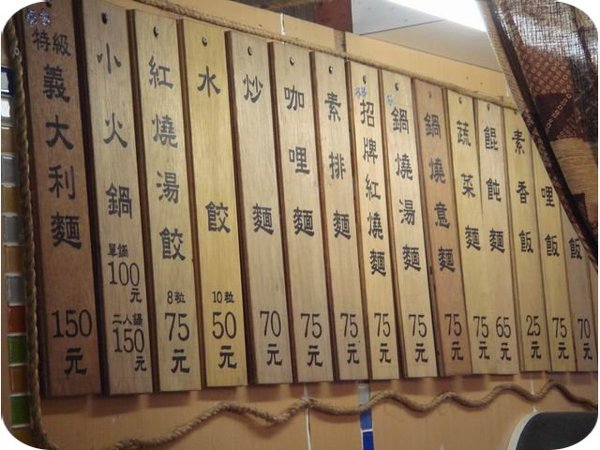 特級義大利麵 150元
小火鍋 單鍋100元 二人鍋150元
紅燒湯餃 8粒 75元
水餃 10粒 50元
炒麵 70元
咖哩麵 75元
素排麵 75元
招牌紅燒麵 75元
鍋燒湯麵 75元
鍋燒意麵 75元
蔬菜麵 75元
餛飩麵 65元
素香飯 25元
哩飯 75元
飯 70元